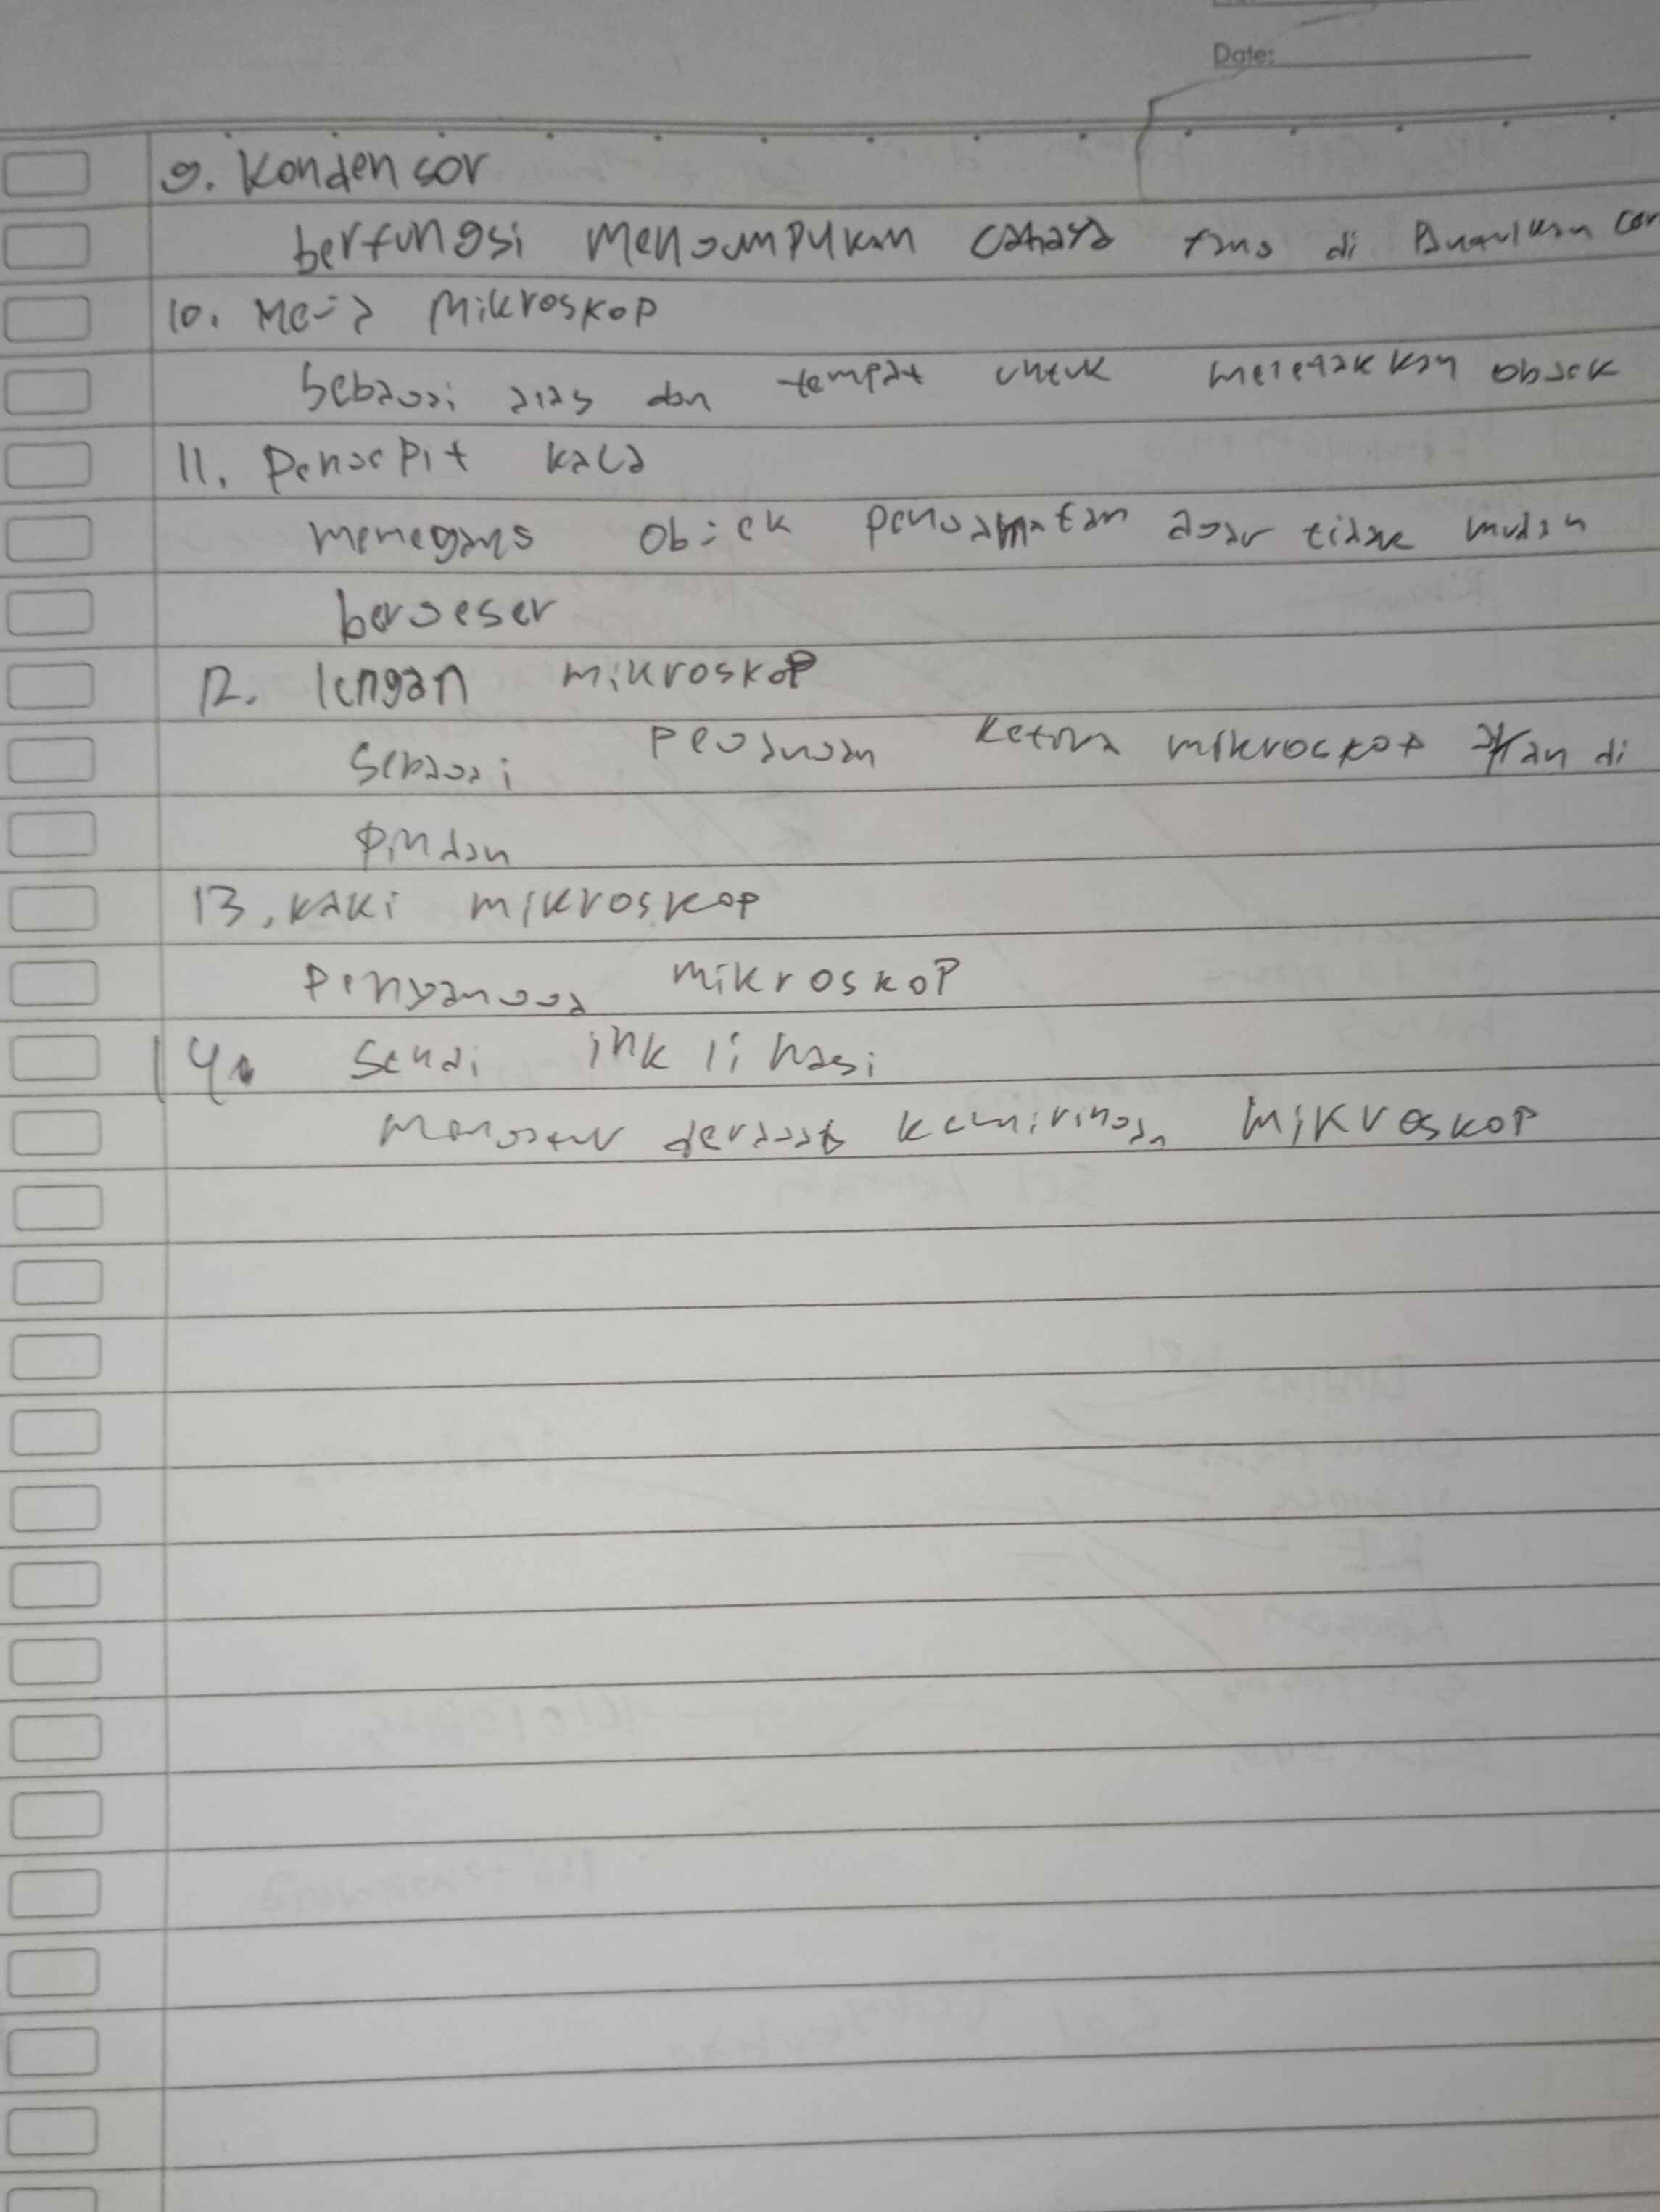 Date:
9. Kondensor
berfungsi mengumpulkan cahaya yang di pantulkan cer
10. Meja Mikroskop
Sebagai alas dan tempat untuk meletakkan objek
11. Penjepit kaca
memegang objek pengamatan agar tidak mudah
bergeser
12. lengan mikroskop
Sebagai pegangan ketika mikroskop akan di
pindah
13. kaki mikroskop
Penyangga mikroskop
14. Sendi inklinasi
Mengatur derajat kemiringan Mikroskop